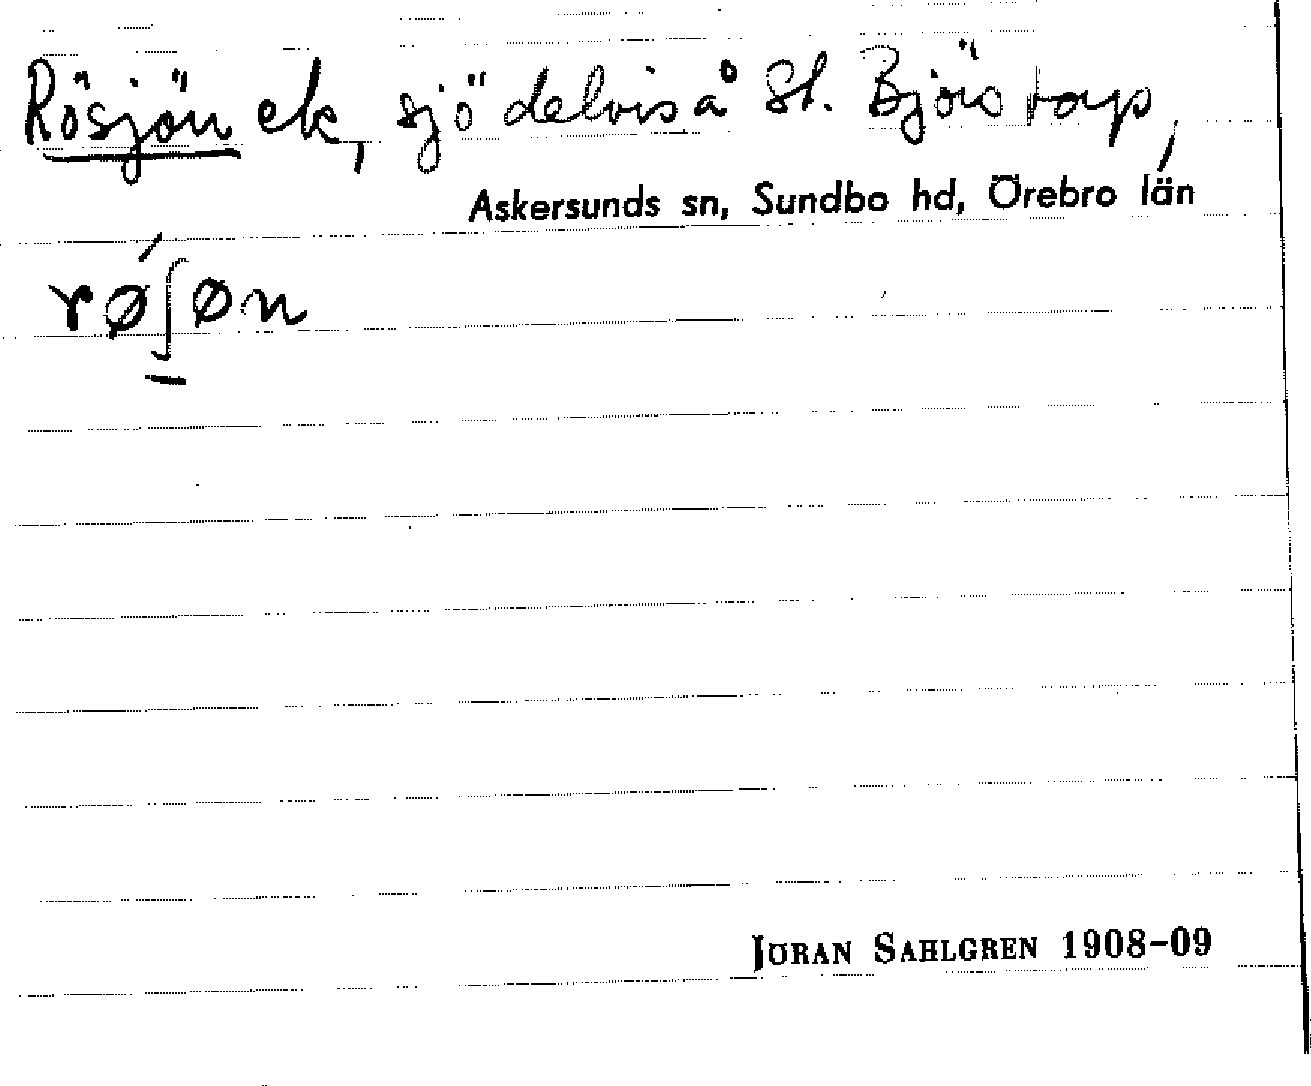 Rösjön ek, sjö delvis å St. Björstorp,
Askersunds sn, Sundbo hd, Örebro län
rǿʃøn
JÖRAN SAHLGREN 1908–09